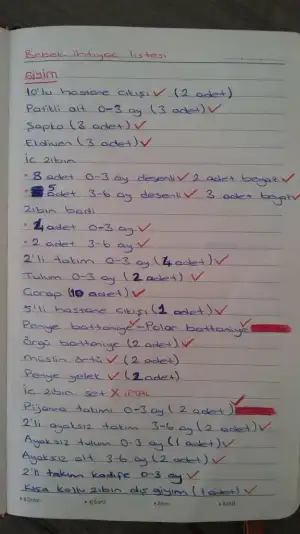 Bebek ihtiyaç listesi
GİYİM
10'lu hastane çıkışı ✓ (2 adet)
Patikli alt 0-3 ay (3 adet) ✓
Şapka (3 adet) ✓
Eldiven (3 adet) ✓
İç zıbın
• 3 adet 0-3 ay desenli ✓ 2 adet beyaz ✓
• 5 adet 3-6 ay desenli ✓ 3 adet beyaz ✓
Zıbın badi
• 4 adet 0-3 ay ✓
• 2 adet 3-6 ay ✓
2'li takım 0-3 ay (4 adet) ✓
Tulum 0-3 ay (2 adet) ✓
Çorap (10 adet) ✓
5'li hastane çıkışı (1 adet) ✓
Penye battaniye ✓ - Polar battaniye ✓
Örgü battaniye (2 adet) ✓
Müslin örtü ✓ (2 adet)
Penye yelek ✓ (2 adet)
İç zıbın set X İPTAL
Pijama takımı 0-3 ay (2 adet) ✓
2'li ayaksız takım 3-6 ay (2 adet) ✓
Ayaksız tulum 0-3 ay (1 adet) ✓
Ayaksız alt 3-6 ay (2 adet) ✓
2'li takım kadife 0-3 ay ✓
Kısa kollu zıbın dış giyim (1 adet) ✓